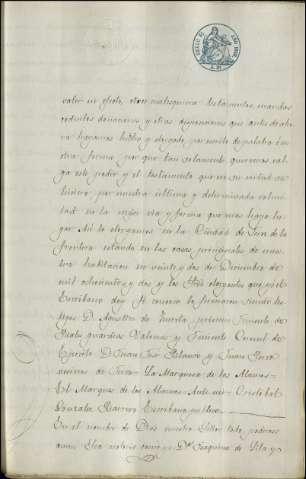 valer ni efecto, otros cualesquiera testamentos, mandas
codicilos donaciones y otras disposiciones que antes de aho-
ra hayamos hecho y otorgado, por escrito de palabra ó en
otra forma por que tan solamente queremos val-
ga este poder y el testamento que en su virtud se
hiciere, por nuestra última y determinada volun-
tad en la mejor via y forma que mas haya lu-
gar Así lo otorgamos en la Ciudad de de la
frontera estando en las casas principales de nues-
tra habitacion en veinte y dos de Diciembre de
mil ochocientos y dos y los Sres otorgantes que yo el
Escribano doy fé conozco lo firmaron siendo tes-
tigos D. Agustin de Huerta, Teniente de
guardias Valonas y Teniente Coronel de
Ejército D. Juan José Palomino y Juan
vecinos de La Marquesa de los Alamos
El Marques de los Alamos Ante mi Cristobal
Gonzalez Escribano publico
En el nombre de Dios nuestro Señor todo poderoso
amen Sea notorio como yo Dª Joaquina de y